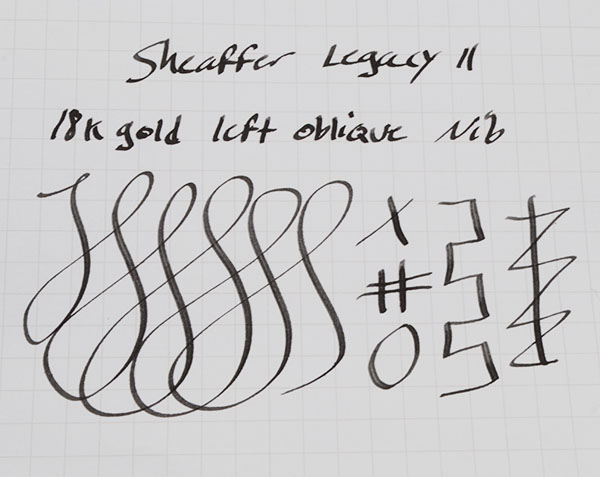 Sheaffer Legacy II
18K gold left oblique Nib
X
#
O